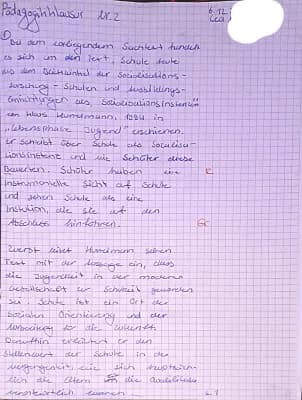 Pädagogikklausur Nr. 2
6.12.
Lea
①
Bei dem vorliegendem Sachtext handelt
es sich um den Text, Schule heute
aus dem Blickwinkel der Sozialisations-
forschung - Schulen und Ausbildungs-
Einrichtungen als Sozialisationsinstanzen
von Klaus Hurrelmann, 1994 in
"Lebensphase Jugend" erschienen.
Er schreibt über Schule als Sozialisa-
tionsinstanz und wie Schüler diese
Bewerten. Schüler haben eine R
Instrumentelle Sicht auf Schule
und sehen Schule als eine
Instution, die sie auf den
Abschluss hinführen. Gr
Zuerst leitet Hurrelmann seinen
Text mit der Aussage ein, dass
die Jugendzeit in der modernen
Gesellschaft zur Schulzeit geworden
sei. Schule ist ein Ort der
sozialen Orientierung und der
Vorbereitung für die Zukunft.
Daraufhin erläutert er den
Stellenwert der Schule in der
Vergangenheit, wie sich
die Eltern die
waren